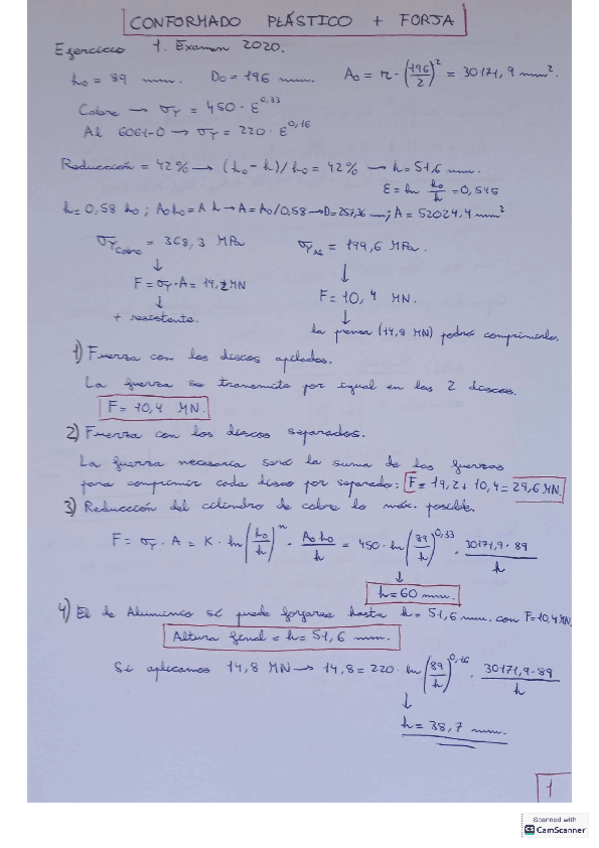 CONFORMADO PLÁSTICO + FORJA
Ejercicio 1. Examen 2020.
h₀ = 89 mm. D₀ = 196 mm. A₀ = π · (196/2)² = 30171,9 mm².
Cobre → σ_Y = 450 · ε^0,33
Al 6061-O → σ_Y = 220 · ε^0,16
Reducción = 42% → (h₀ - h)/h₀ = 42% → h = 51,6 mm.
ε = ln h₀/h = 0,545
h = 0,58 h₀ ; A₀h₀ = A h → A = A₀/0,58 → D = 257,36 → ; A = 52024,4 mm²
σ_Y Cobre = 368,3 MPa σ_Y Al = 199,6 MPa.
↓ ↓
F = σ_Y · A = 19,2 MN F = 10,4 MN.
↓ ↓
+ resistente. la prensa (14,8 MN) podrá comprimirlo.
1) Fuerza con los discos apilados.
La fuerza se transmite por igual en los 2 discos.
F = 10,4 MN.
2) Fuerza con los discos separados.
La fuerza necesaria será la suma de las fuerzas
para comprimir cada disco por separado: F = 19,2 + 10,4 = 29,6 MN.
3) Reducción del cilindro de cobre lo máx. posible.
F = σ_Y · A = K · ln(h₀/h)^n · A₀h₀/h = 450 · ln(89/h)^0,33 · 30171,9 · 89/h
↓
h = 60 mm.
4) El de Aluminio sí puede forjarse hasta h = 51,6 mm. con F = 10,4 MN.
Altura final = h = 51,6 mm.
Si aplicamos 14,8 MN → 14,8 = 220 · ln(89/h)^0,16 · 30171,9 · 89/h
↓
h = 38,7 mm.
1
Scanned with
CS CamScanner